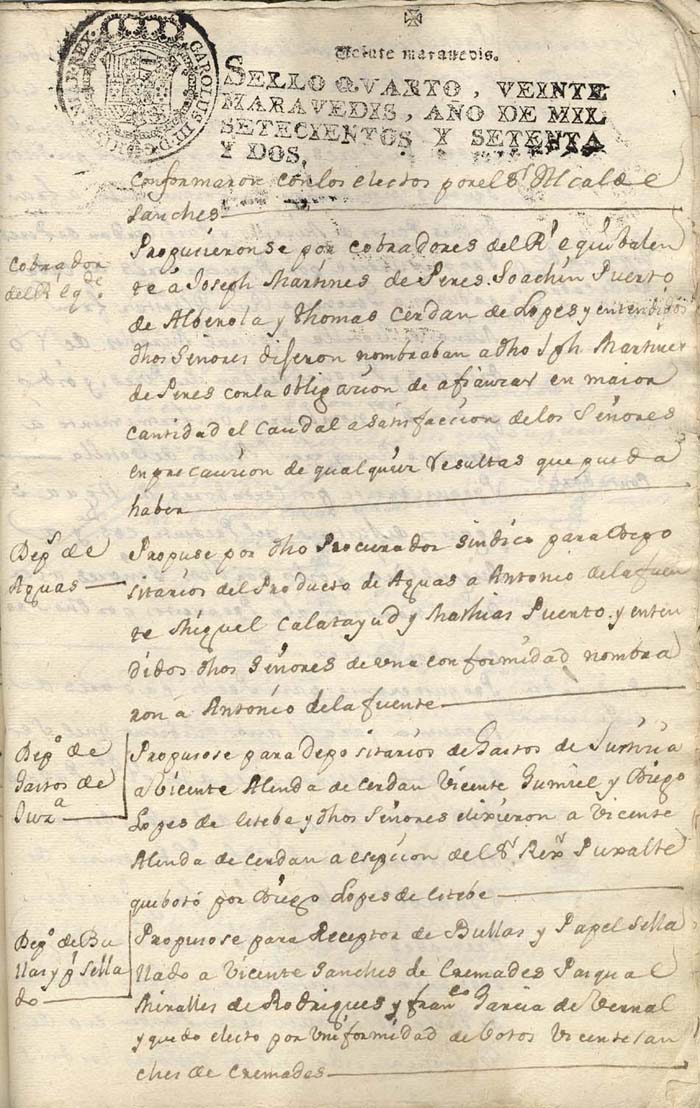 Veinte maravedis.
SELLO QVARTO, VEINTE
MARAVEDIS, AÑO DE MIL
SETECIENTOS Y SETENTA
Y DOS.
CAROLUS III D. G. HISPANIAR REX
Conformaron con los electos por el Sr. Alcalde
Sanches
Cobrador
del Rl. eqde.
Propusieronse por cobradores del Rl. equibalen
te á Joseph Martines de Peres, Joachin Puerto
de Alberola y Thomas Cerdan de Lopes y entendidos
dhos Señores dijeron nombraban a dho Jph Martines
de Peres con la obligacion de afianzar en maior
cantidad el caudal a satisfaccion de los Señores
en precaucion de qualquier resultas que pueda
haber
Depo. de
Aguas
Propuse por dho Procurador sindico para Depo
sitarios del Producto de Aguas a Antonio de la fuen
te Miguel Calatayud y Mathias Puerto y enten
didos dhos Señores de una conformidad nombra
ron á Antonio de la fuente
Depo. de
Gastos de
Juza
Propusose para depositarios de Gastos de Justicia
a Vicente Alenda de Cerdan Vicente Gumiel y Diego
Lopes de estebe y dhos Señores elixieron a Vicente
Alenda de Cerdan a esepcion del Sr. Rexr. Puxalte
que botó por Diego Lopes de estebe
Depo. de Bu
llas y pl. Sella
do
Propusose para Receptor de Bullas y Papel Sella
llado a Vicente Sanches de Cremades Pasqual
Miralles de Rodrigues y Franco. Garcia de Bernal
y quedo electo por Uniformidad de botos Vicente San
ches de Cremades